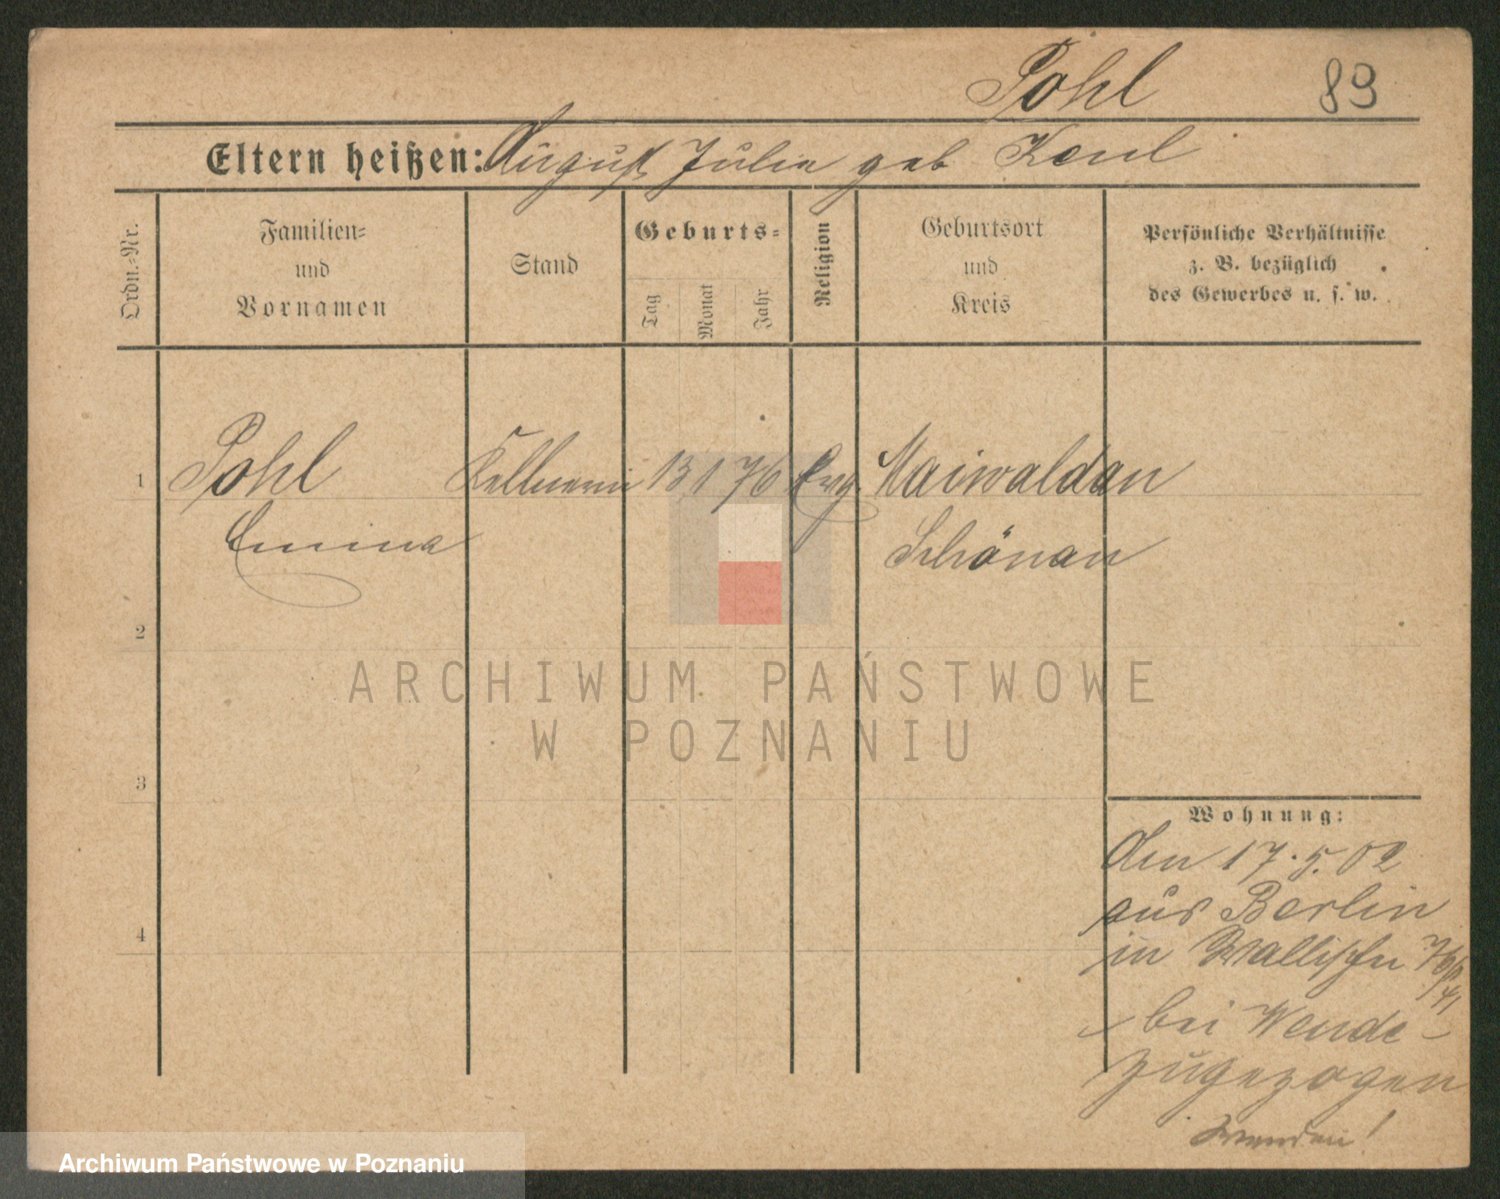 Pohl 89
Eltern heißen: August Julie geb
Ordn.-Nr.
Familien-
und
Vornamen
Stand
Geburts-
Tag
Monat
Jahr
Religion
Geburtsort
und
Kreis
Persönliche Verhältnisse
z. B. bezüglich
des Gewerbes u. s. w.
1 Pohl Kellnerin 13 1 76 Evg. Maiwaldau
Emma Schönau
2
ARCHIWUM PAŃSTWOWE
W POZNANIU
3
Wohnung:
den 17.5.02
aus Berlin
4
in Wallischei
bei Wende
zugezogen
wenden!
Archiwum Państwowe w Poznaniu